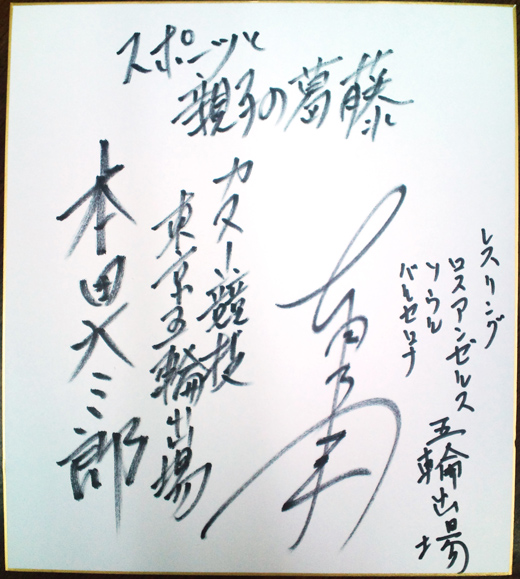 スポーツと
親子の葛藤
レスリング
ロスアンゼルス
ソウル
バルセロナ
五輪出場
カヌー競技
東京五輪出場
本田大三郎